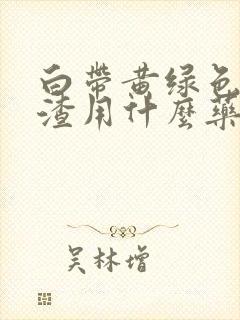 白帶黄绿色
渣用什麼藥
吴林增